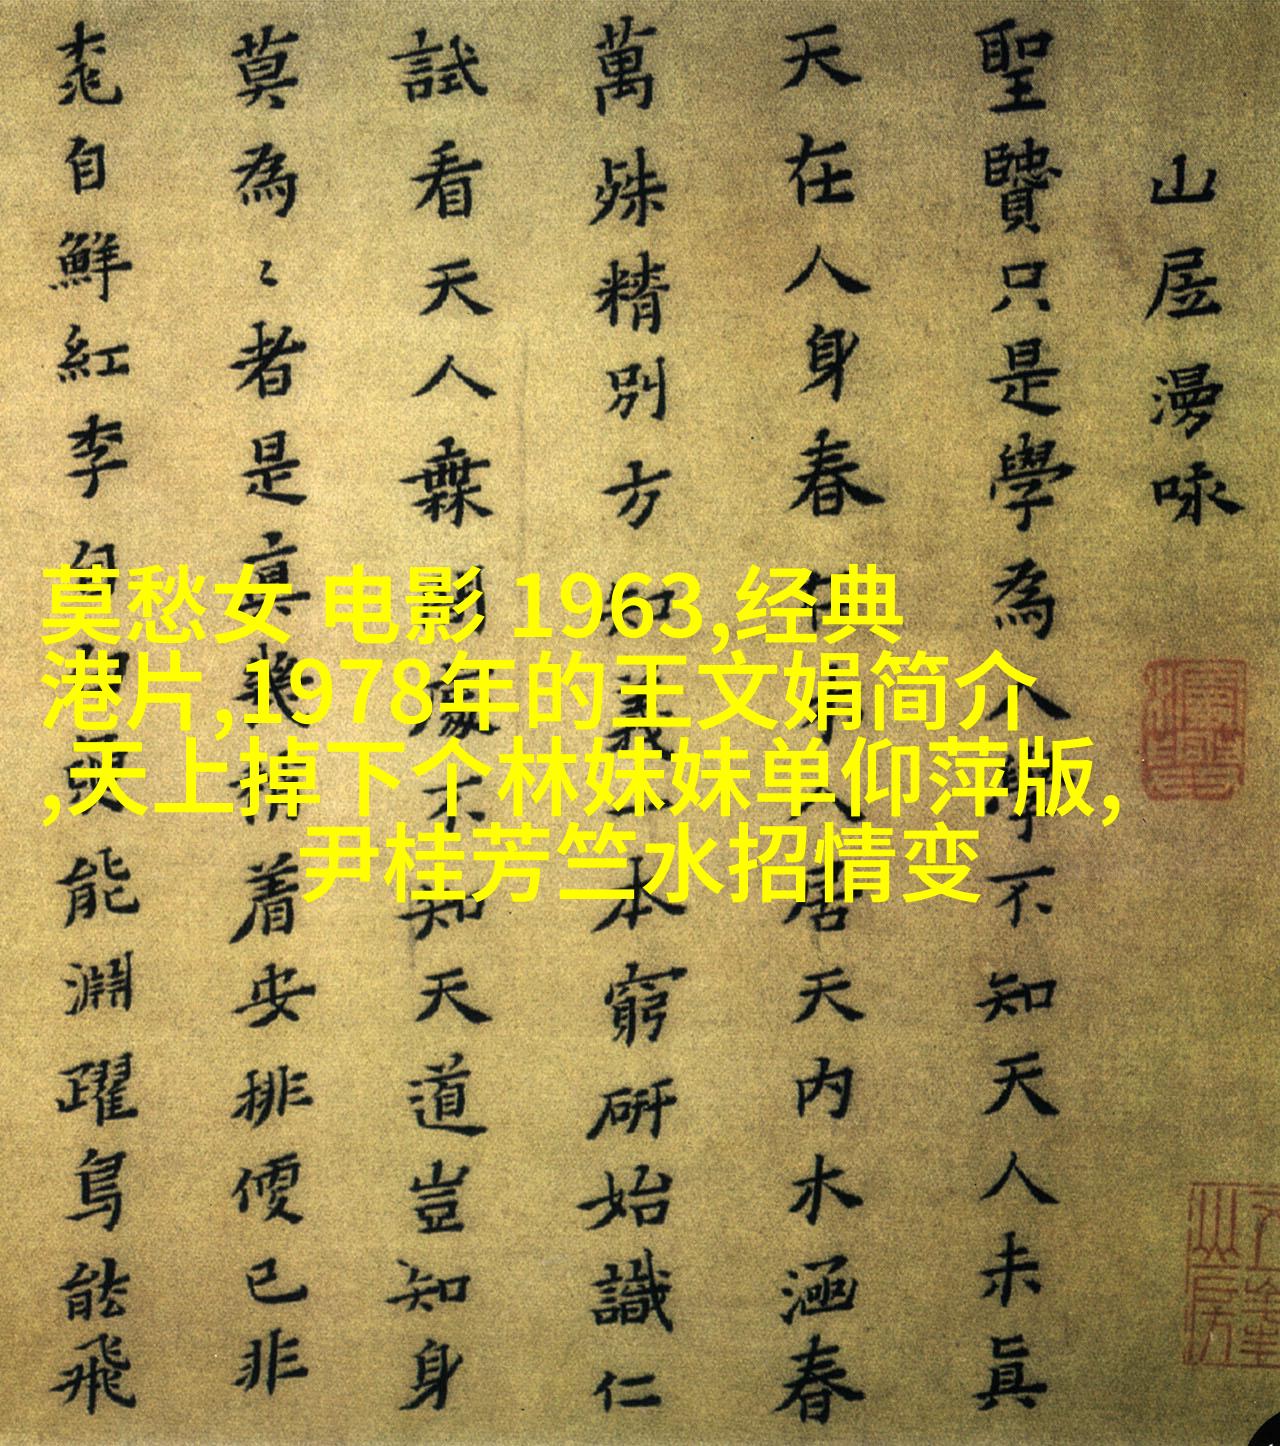 山居漫咏
聖賢只是學為人學不知天人未真
天在人身春在木人居天內木涵春
萬殊精別方知義一本窮研始識仁
試看天人無間處不知天道豈知身
莫為々者是真機着安排便已非
桃自鮮紅李自白魚能淵躍鳥能飛
莫愁女 电影 1963,经典
港片,1978年的王文娟简介
,天上掉下个林妹妹单仰萍版,
尹桂芳竺水招情变